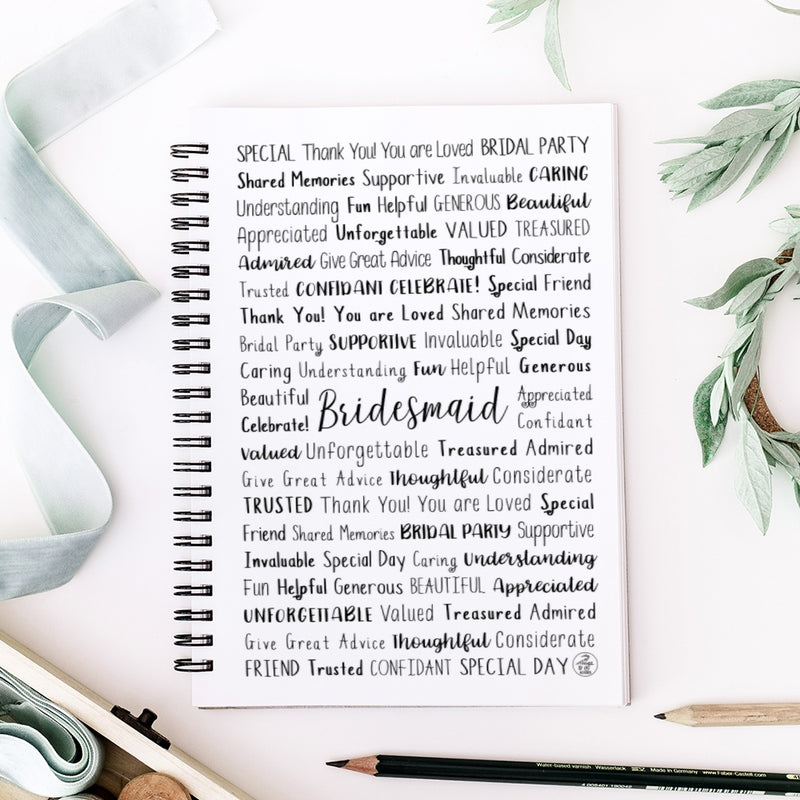 SPECIAL Thank You! You are Loved BRIDAL PARTY
Shared Memories Supportive Invaluable CARING
Understanding Fun Helpful GENEROUS Beautiful
Appreciated Unforgettable VALUED TREASURED
Admired Give Great Advice Thoughtful Considerate
Trusted CONFIDANT CELEBRATE! Special Friend
Thank You! You are Loved Shared Memories
Bridal Party SUPPORTIVE Invaluable Special Day
Caring Understanding Fun Helpful Generous
Beautiful
Celebrate!
Bridesmaid
Appreciated
Confidant
Valued Unforgettable Treasured Admired
Give Great Advice Thoughtful Considerate
TRUSTED Thank You! You are Loved Special
Friend Shared Memories BRIDAL PARTY Supportive
Invaluable Special Day Caring Understanding
Fun Helpful Generous BEAUTIFUL Appreciated
UNFORGETTABLE Valued Treasured Admired
Give Great Advice Thoughtful Considerate
FRIEND Trusted CONFIDANT SPECIAL DAY
Water-based varnish Wasserlack Made in Germany www.Faber-Castell.com